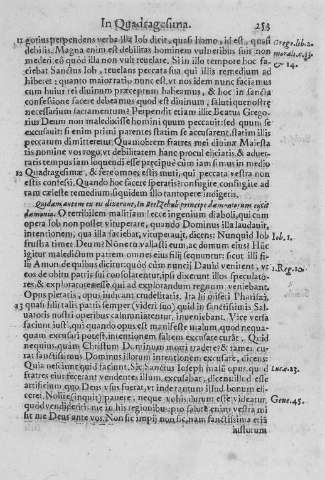 In Quadragesima. 253
11 gorius perpendens verba illa Iob dicit, quasi homo, id est, quasi
debilis. Magna enim est debilitas hominem vulneribus suis non
mederi eò quòd illa non vult reuelare. Si in illo tempore hoc fa-
ciebat Sanctus Iob, reuelans peccata sua, qui illis remedium ad
hiberet; quanto maior ratio nunc est, vt nos idem nunc faciamus
cum huius rei diuinum præceptum habeamus, & hoc in sancta
confessione facere debeamus quod est diuinum, saluti que nostre
necessarium sacramentum? Perpendit etiam illic Beatus Grego-
rius Deum non maledixisse homini quum peccauit: sed quum se
excusauit: si enim primi parentes statim se accusarent, statim illis
peccatum dimitteretur. Quamobrem fratres mei diuina Maiesta
tis nomine vos rogo, vt debilitatem hanc procul eliciatis, & aduer-
tatis tempus iam inquendi esse præcipuè cùm iam simus in medio
12 Quadragesimæ, & ferè omnes estis muti, qui peccata vestra non
estis confessi. Quando hoc facere speratis? confugite confugite ad
tam cæleste remedium siquidem illo tantopere indigetis.
Quidam autem ex eis dixerunt, In Beelzebub principe dæmoniorum eijcit
dæmonia. O terribilem malitiam! ecce ingenium diaboli, qui cum
opera Iob non posset vituperare, quando Dominus illa laudauit,
intentionem, qua illa faciebat, vituperauit, dicens: Nunquid Iob
frustra timet Deum? Nonne tu vallasti eum, ac domum eius? Hûc
igitur maledictum patrem omnes eius filij sequuntur: sicut illi fi-
lij Amon, de quibus dicitur: quòd cùm nuncij Dauid venirent, vt
eos de obitu patris sui consolarentur, ipsi dixerunt illos speculato-
res, & exploratores esse, qui ad explorandum regnum veniebant.
Opus pietatis, opus iudicant crudelitatis. Ita hi diserti Pharisæi,
13 quasi filij talis patris semper (videri suo) quid in sanctissimis Sal-
uatoris nostri operibus calumniarentur, inueniebant. Vice versa
faciunt iusti, qui quando opus est manifestè malum, quod nequa-
quam excusari potest, intentionem saltem excusare curât. Quid
nequius, quàm Christum Dominum mori tradere? & tamen cu-
rat sanctissimus Dominus illorum intentionem excusare, dicens:
Quia nesciunt quid faciunt. Sic Sanctus Ioseph malum opus, quod
fratres eius fecerant vendentes illum, excusabat, dicens illud esse
artificium, quo Deus vsus fuerat, vt inde tantum illud bonum eli-
ceret. Nolite (inquit) pauere, neque vobis durum esse videatur,
quod vendideritis me in his regionibus: pro salute enim vestra mi
sit me Deus ante vos. Non sic impij non sic, sanctissima etiā
iustorum
Grego. lib. 2.
Iob. 1.
1. Reg. 10.
Luc. 23.
Gene. 45.